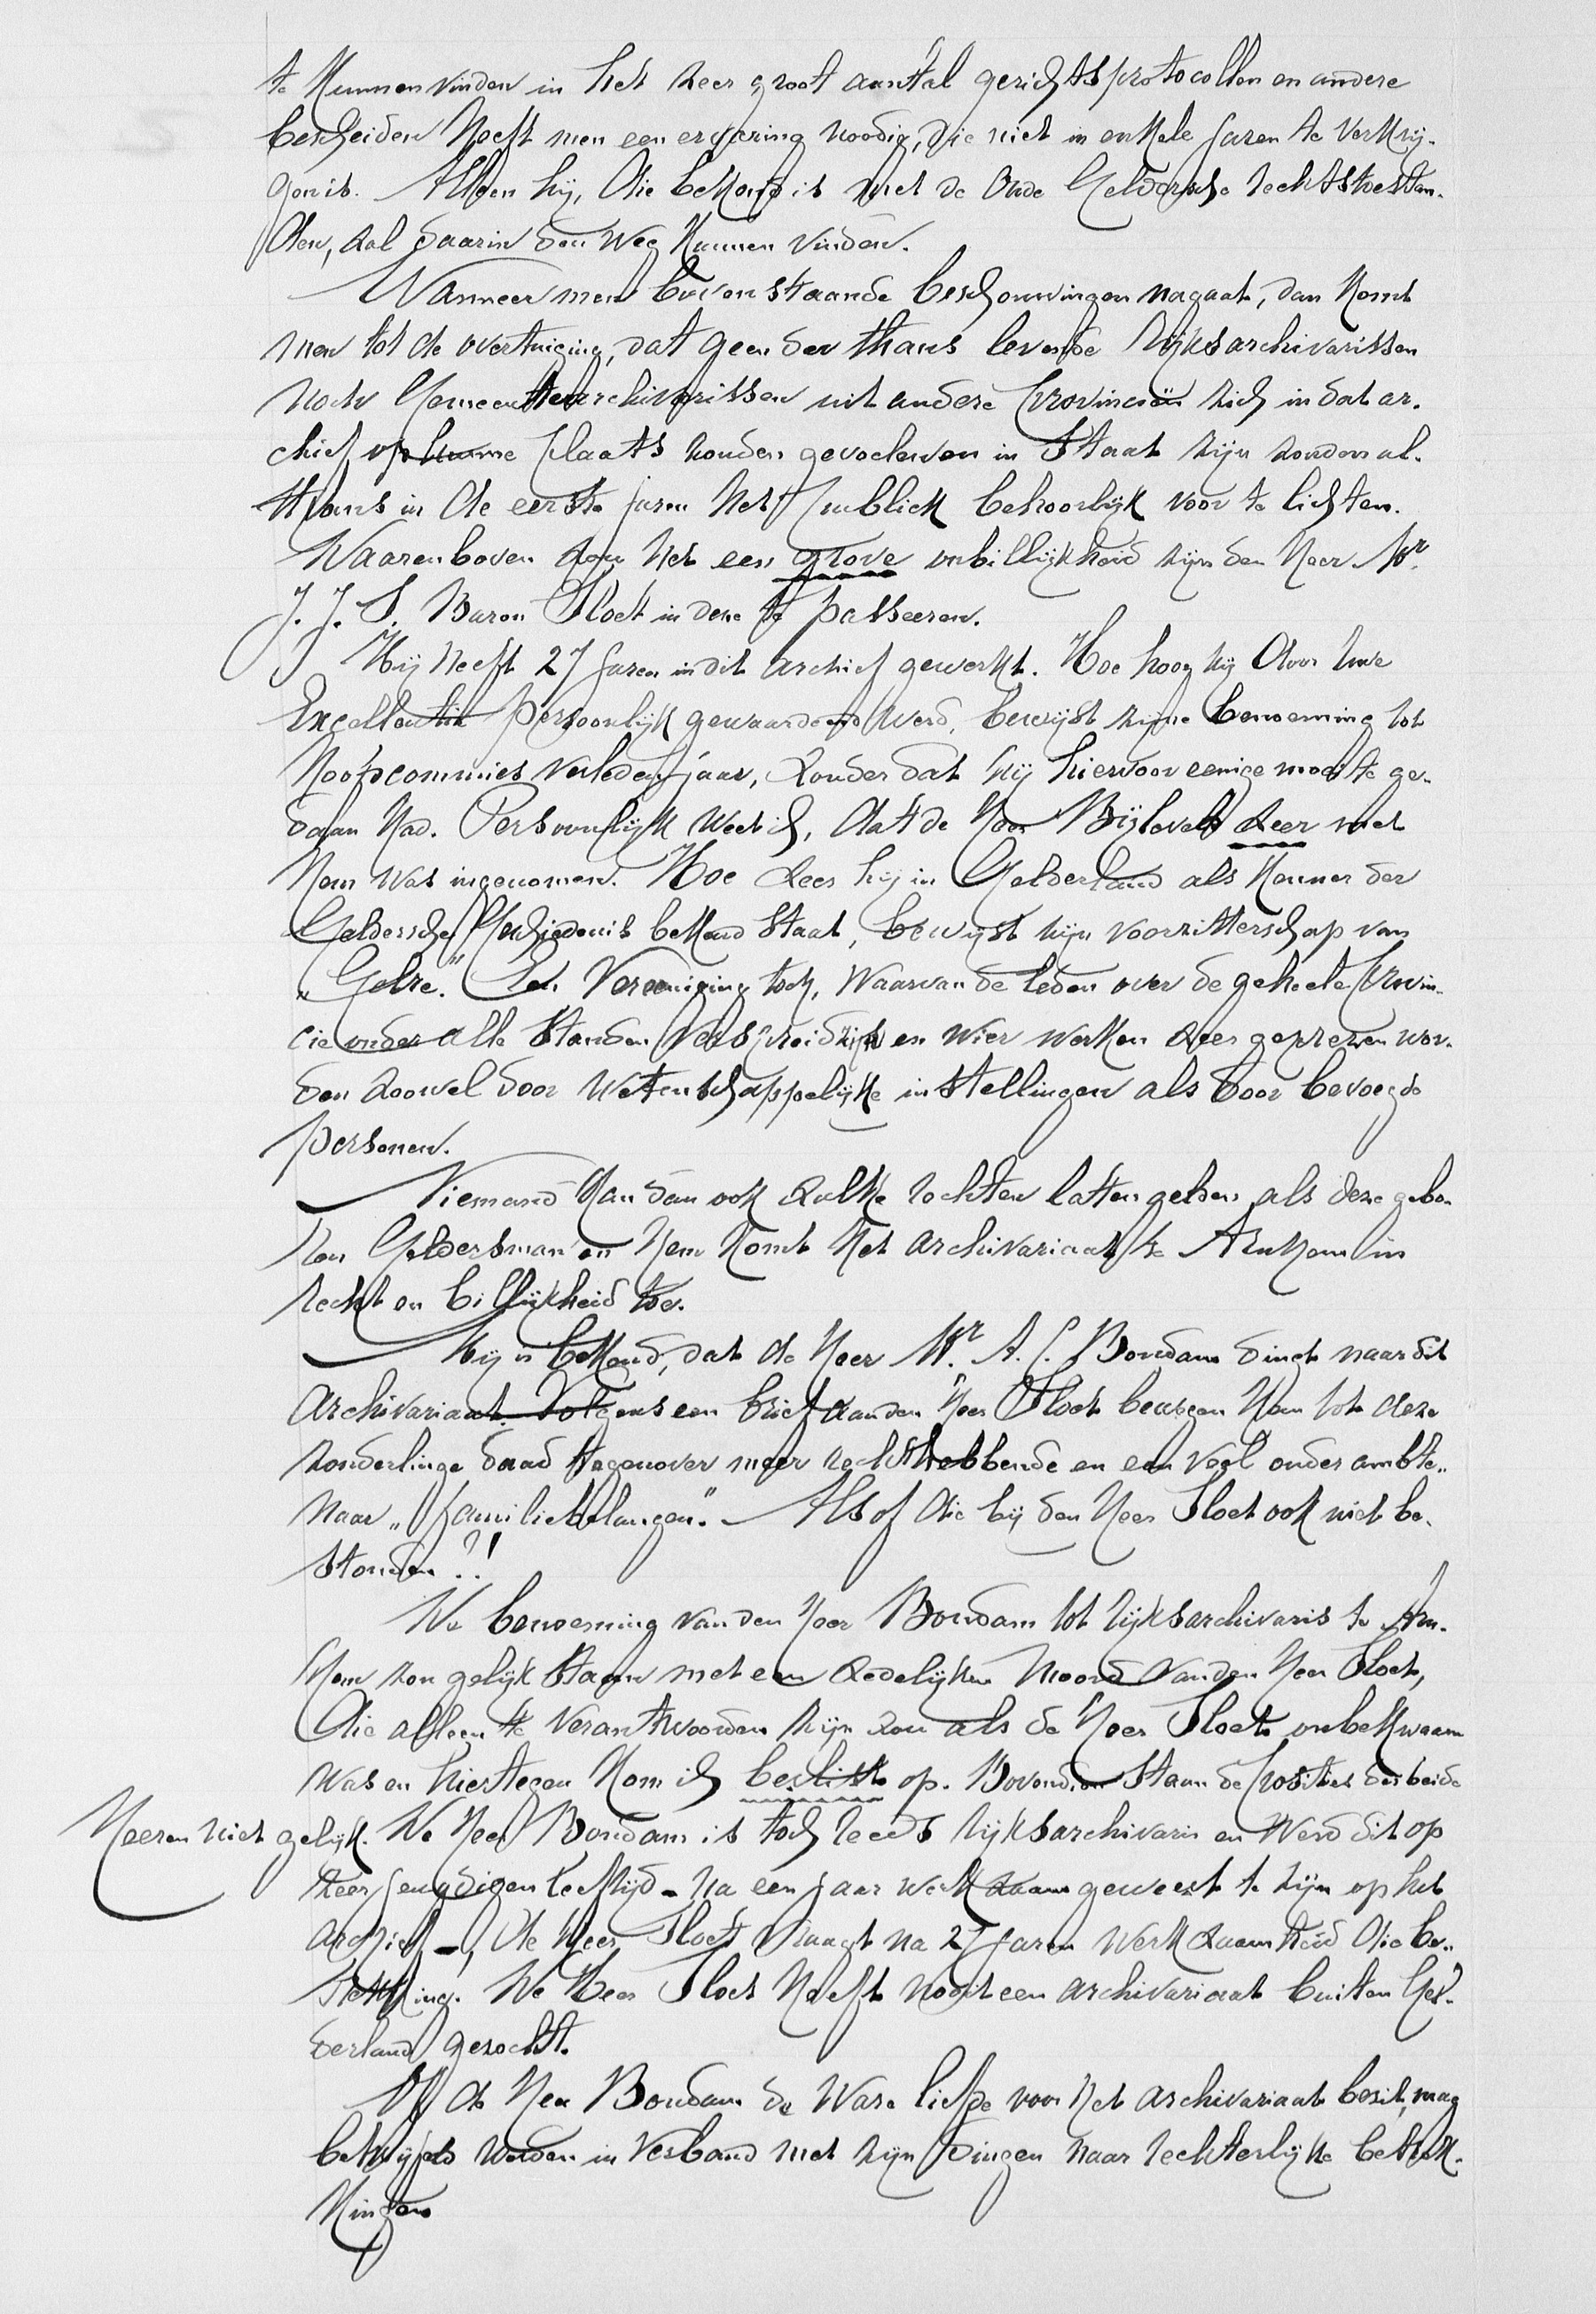 te kunnen vinden in het zeer groot aantal gerichtsprotocollen en andere
bescheiden heeft men een ervaring noodig, die niet in enkele jaren te verkrij-
gen is. Alleen hij, die bekend is met de Oude Geldersche rechtstoestan-
den, zal daarin den weg kunnen vinden.
Wanneer men bovenstaande beschouwingen nagaat, dan komt
men tot de overtuiging, dat geen der thans levende Rijksarchivarissen
noch Gemeentearchivarissen uit andere Provinciën zich in dat ar-
chief op hunne plaats zouden gevoelen en in staat zijn zouden al-
thans in de eerste jaren het publiek behoorlijk voor te lichten.
Waarenboven zou het een grove onbillijkheid zijn den Heer Mr.
J. J. S. Baron Sloet in deze te passeeren.
Hij heeft 27 jaren in dit archief gewerkt. Hoe hoog hij door Uwe
Excellentie persoonlijk gewaardeerd werd, bewijst zijne benoeming tot
Hoofdcommies verleden jaar, zonder dat hij hiervoor eenige moeite ge-
daan had. Persoonlijk weet ik, dat de Heer Bijleveld zeer met
hem was ingenomen. Hoe zeer hij in Gelderland als kenner der
Geldersche Geschiedenis bekend staat, bewijst zijn voorzitterschap van
„Gelre." Een Vereeniging toch, waarvan de leden over de geheele Provin-
cie onder alle standen verspreid zijn en wier werken zeer geprezen wor-
den zoowel door wetenschappelijke instellingen als door bevoegde
personen.
Niemand kan dan ook zulke rechten laten gelden als deze gebo-
ren Geldersman en hem komt het archivariaat te Arnhem in
recht en billijkheid toe.
Mij is bekend, dat de Heer Mr. A. C. Bondam dingt naar dit
archivariaat. Volgens een brief aan den Heer Sloet bewegen hem tot deze
zonderlinge daad tegenover meer rechthebbende en een veel ouder ambte-
naar „familiebelangen". Alsof die bij den Heer Sloet ook niet be-
stonden?!
De benoeming van den Heer Bondam tot Rijksarchivaris te Arn-
hem zou gelijk staan met een zedelijken moord van den Heer Sloet,
die alleen te verantwoorden zijn zou als de Heer Sloet onbekwaam
was en hiertegen kom ik beslist op. Bovendien staan de posities der beide
Heeren niet gelijk. De Heer Bondam is toch reeds rijksarchivaris en werd dit op
zeer jeugdigen leeftijd - na een jaar werkzaam geweest te zijn op het
archief -, de Heer Sloet vraagt na 27 jaren werkzaamheid die be-
trekking. De Heer Sloet heeft nooit een archivariaat buiten Gel-
derland gezocht.
Of de Heer Bondam de ware liefde voor het archivariaat bezit, mag
betwijfeld worden in verband met zijn dingen naar rechterlijke betrek-
kingen